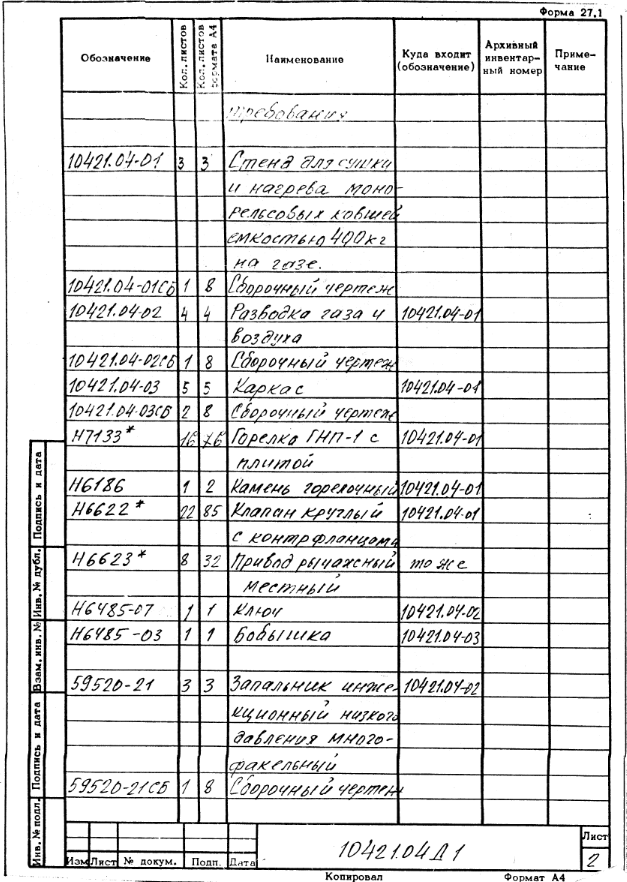 Форма 27,1
Обозначение Кол. листов Кол. листов формата А4 Наименование Куда входит (обозначение) Архивный инвентар- ный номер Приме- чание
требования
10421.04-01 3 3 Стенд для сушки
и нагрева моно-
рельсовых ковшей
емкостью 400кг
на газе.
10421.04-01СБ 1 8 Сборочный чертеж
10421.04-02 4 4 Разводка газа и 10421.04-01
воздуха
10421.04-02СБ 1 8 Сборочный чертеж
10421.04-03 5 5 Каркас 10421.04-01
10421.04-03СБ 2 8 Сборочный чертеж
Н7133* 16 76 Горелка ГНП-1 с 10421.04-01
плитой
Н6186 1 2 Камень горелочный 10421.04-01
Н6622* 22 85 Клапан круглый 10421.04-01
с контрфланцами
Н6623* 8 32 Привод рычажный то же
местный
Н6485-07 1 1 Ключ 10421.04-02
Н6485-03 1 1 Бобышка 10421.04-03
59520-21 3 3 Запальник инже- 10421.04-02
кционный низкого
давления много-
факельный
59520-21СБ 1 8 Сборочный чертеж
Инв. № подл. Подпись и дата Взам. инв. № Инв. № дубл. Подпись и дата
Изм Лист № докум. Подп. Дата
10421.04Д1
Лист
2
Копировал Формат А4